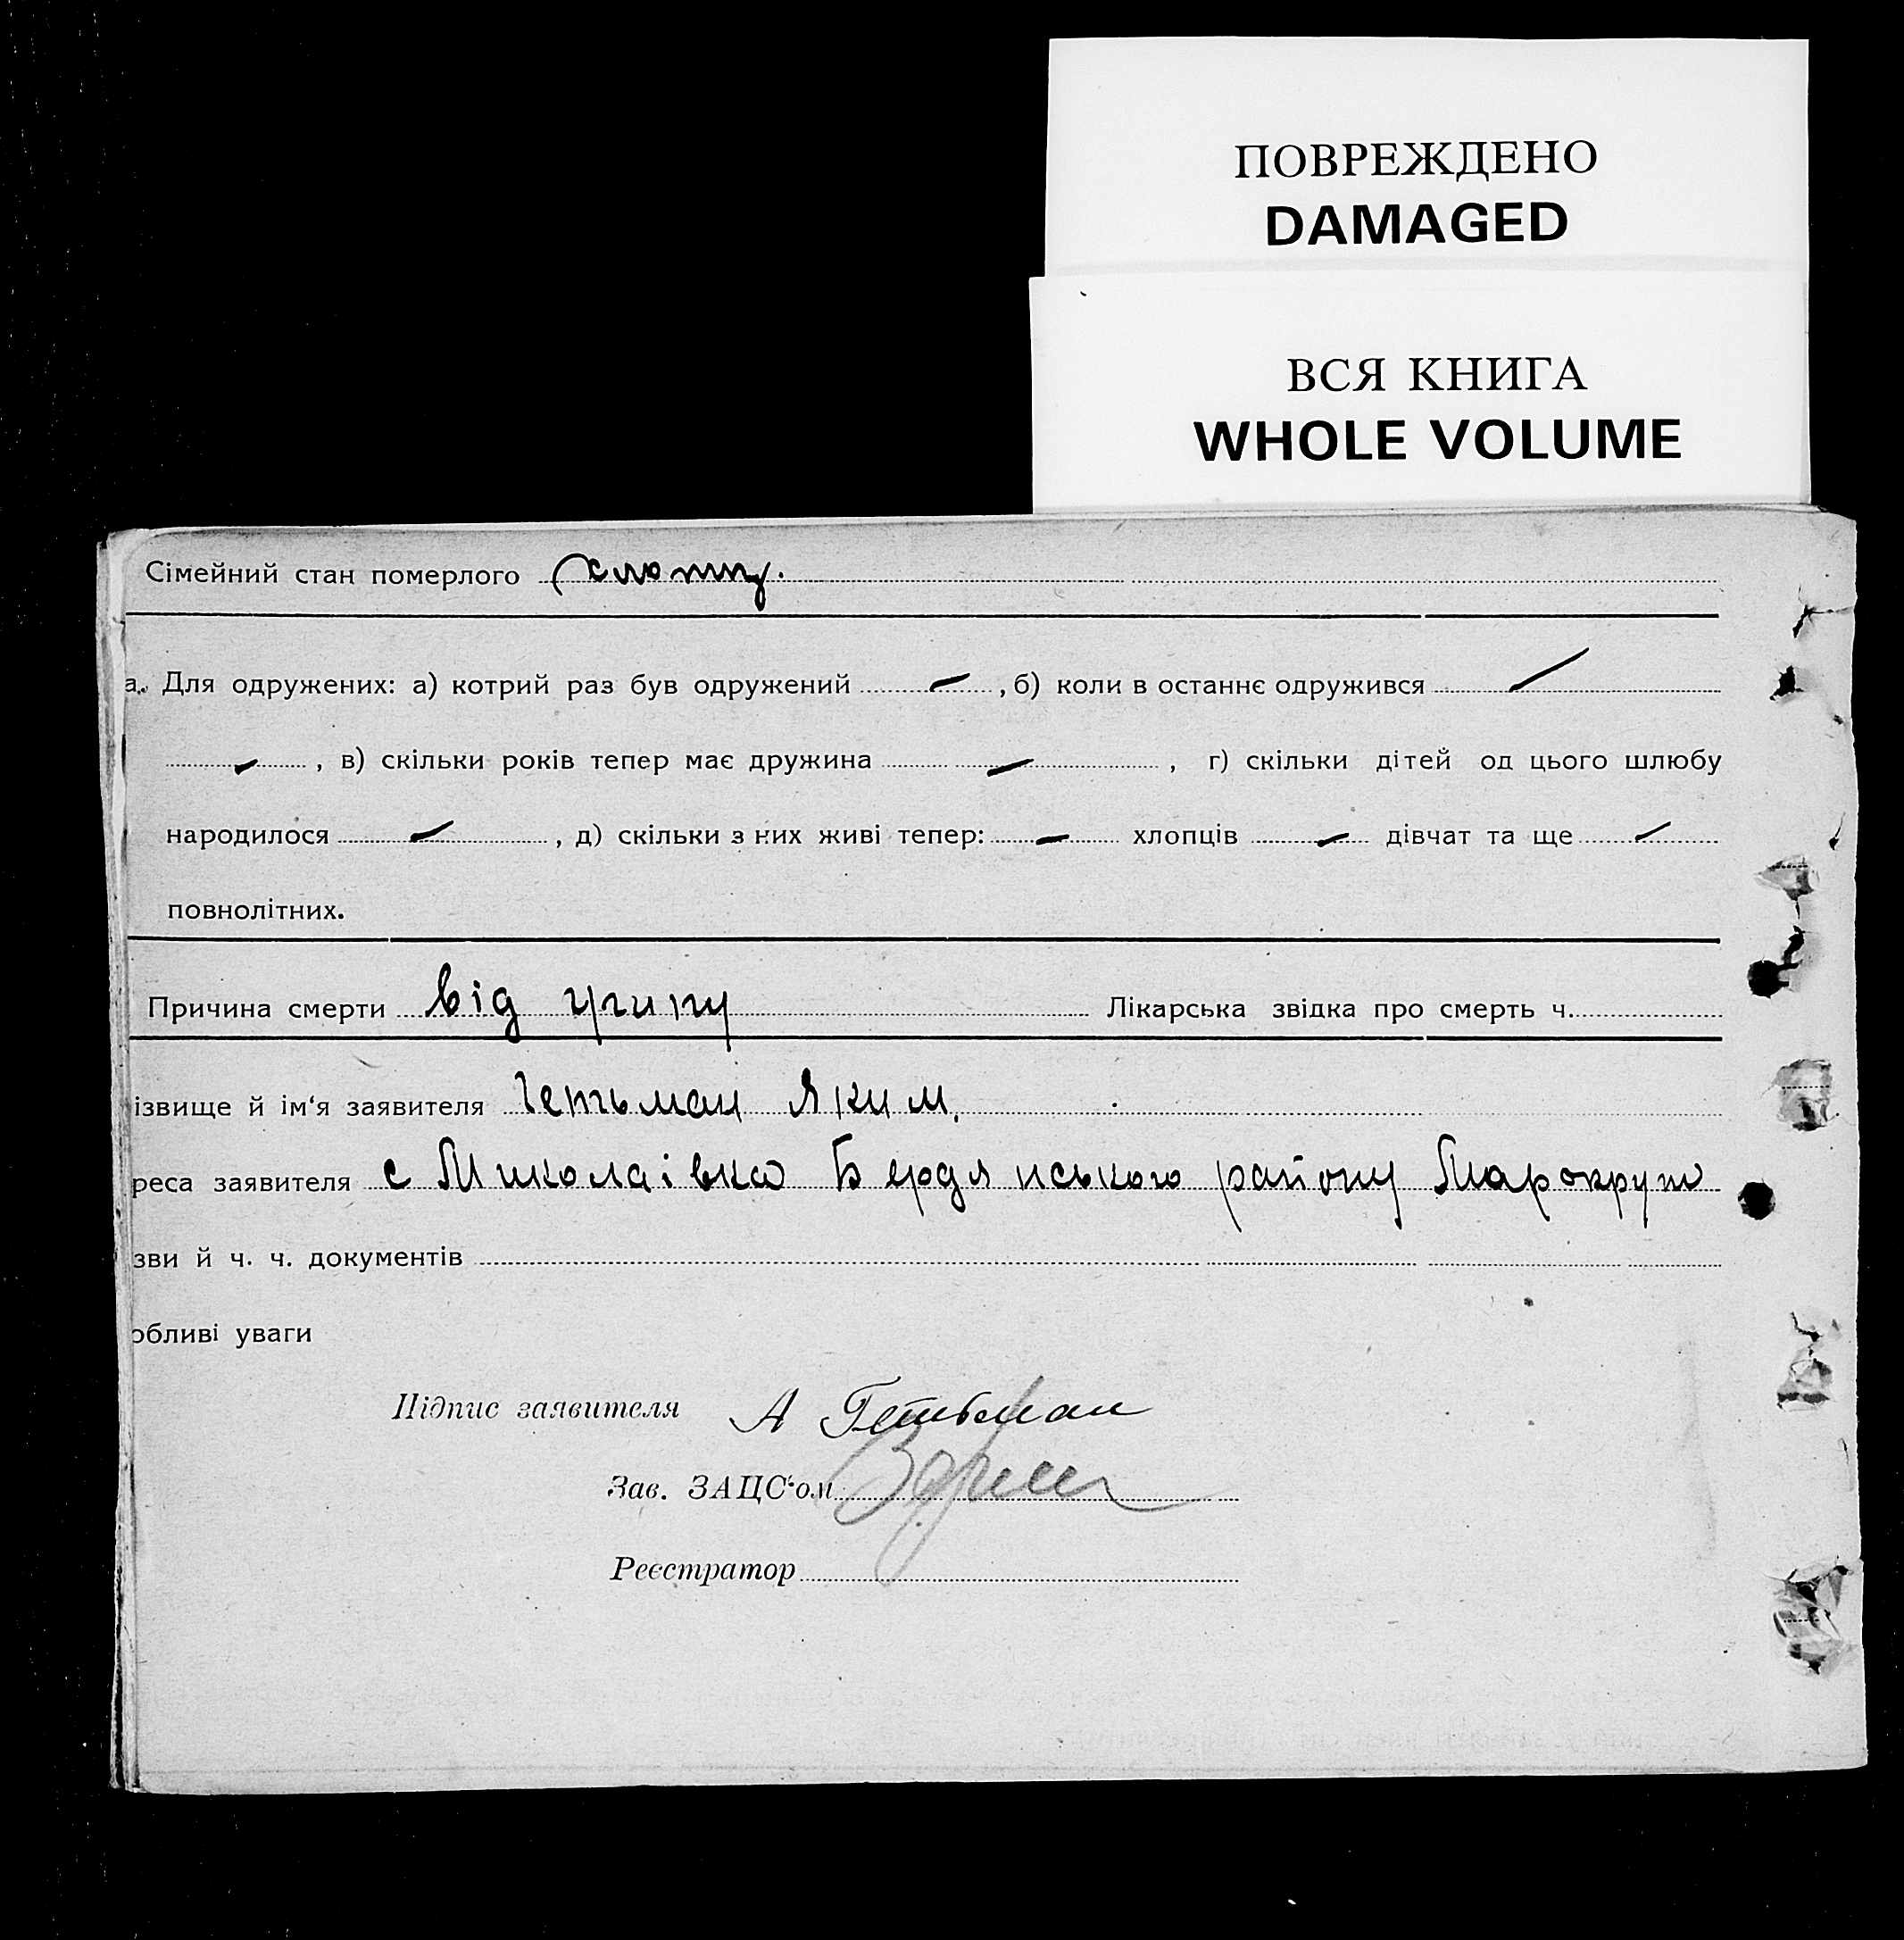 ПОВРЕЖДЕНО
DAMAGED
ВСЯ КНИГА
WHOLE VOLUME
Сімейний стан померлого
а. Для одружених: а) котрий раз був одружений , б) коли в останнє одружився
, в) скільки років тепер має дружина , г) скільки дітей од цього шлюбу
народилося , д) скільки з них живі тепер: хлопців дівчат та ще
повнолітних.
Причина смерти від Лікарська звідка про смерть ч.
ізвище й ім'я заявителя Гетьман Яким.
реса заявителя с Миколаївка Бердянського району Марокруги
зви й ч. ч. документів
обливі уваги
Підпис заявителя А Гетьман
Зав. ЗАЦС'ом
Реєстратор